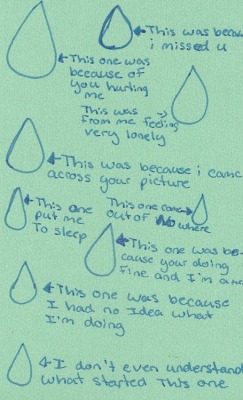 This was becau
i missed u
This one was
because of
you hurting
me
This was
from me feeling
very lonely
This was because i came
across your picture
This one
put me
To sleep
This one came
out of NO where
This one was be-
cause your doing
fine and I'm a
This one was because
I had no Idea what
I'm doing
I don't even understand
what started This one